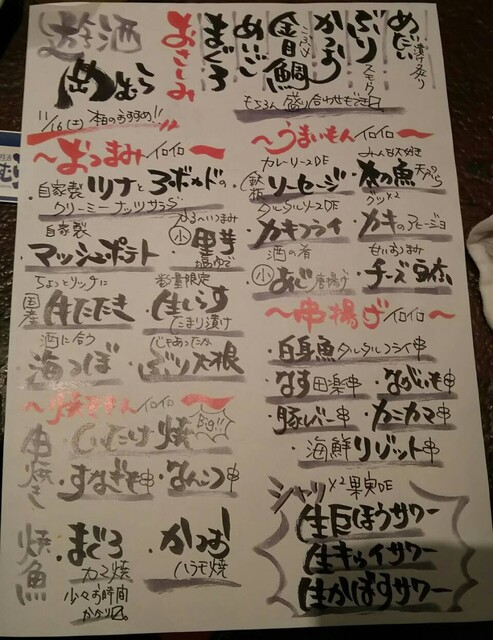 遊酒
岡むら
おさしみ
まぐろ
めいご
金目鯛
かつお
ぶり
スモーク
めだい
薄炙り
もちろん盛り合わせも〼
11/16(土)本日のおすすめ!!
〜おつまみイロイロー
自家製ツナとアボカドの
クリーミーナッツサラダ
自家製
・マッシュポテト
かるーいつまみ
小
里芋
塩ゆで
ちょっとリッチに
国産
牛たたき
数量限定
・生しらす
たまり漬け
酒に合う
・海つぼ
じゃあったか
・ぶり大根
〜焼きもんイロイロー
串焼き
・しいたけ焼
Big!!
・すなぎも串
・なんこつ串
焼魚
・まぐろ
カマ焼
少々お時間
かかり〼。
・かつお
ハラモ焼
〜うまいもんイロイロー
カレーソースDE
鉄板
ソーセージ
みんな大好き
・本日の魚天ぷら
タルタルソースDE
・カキフライ
グツ×2
・カキのアヒージョ
酒の肴
小
あじ唐揚げ
・チーズ豆腐
〜串揚げイロイロー
・白身魚タルタルフライ串
・なす田楽串
・ながいも串
・豚レバー串
・カニカマ串
・海鮮リゾット串
シャリ×2果実DE
生巨ほうサワー
生キウイサワー
生かぼすサワー